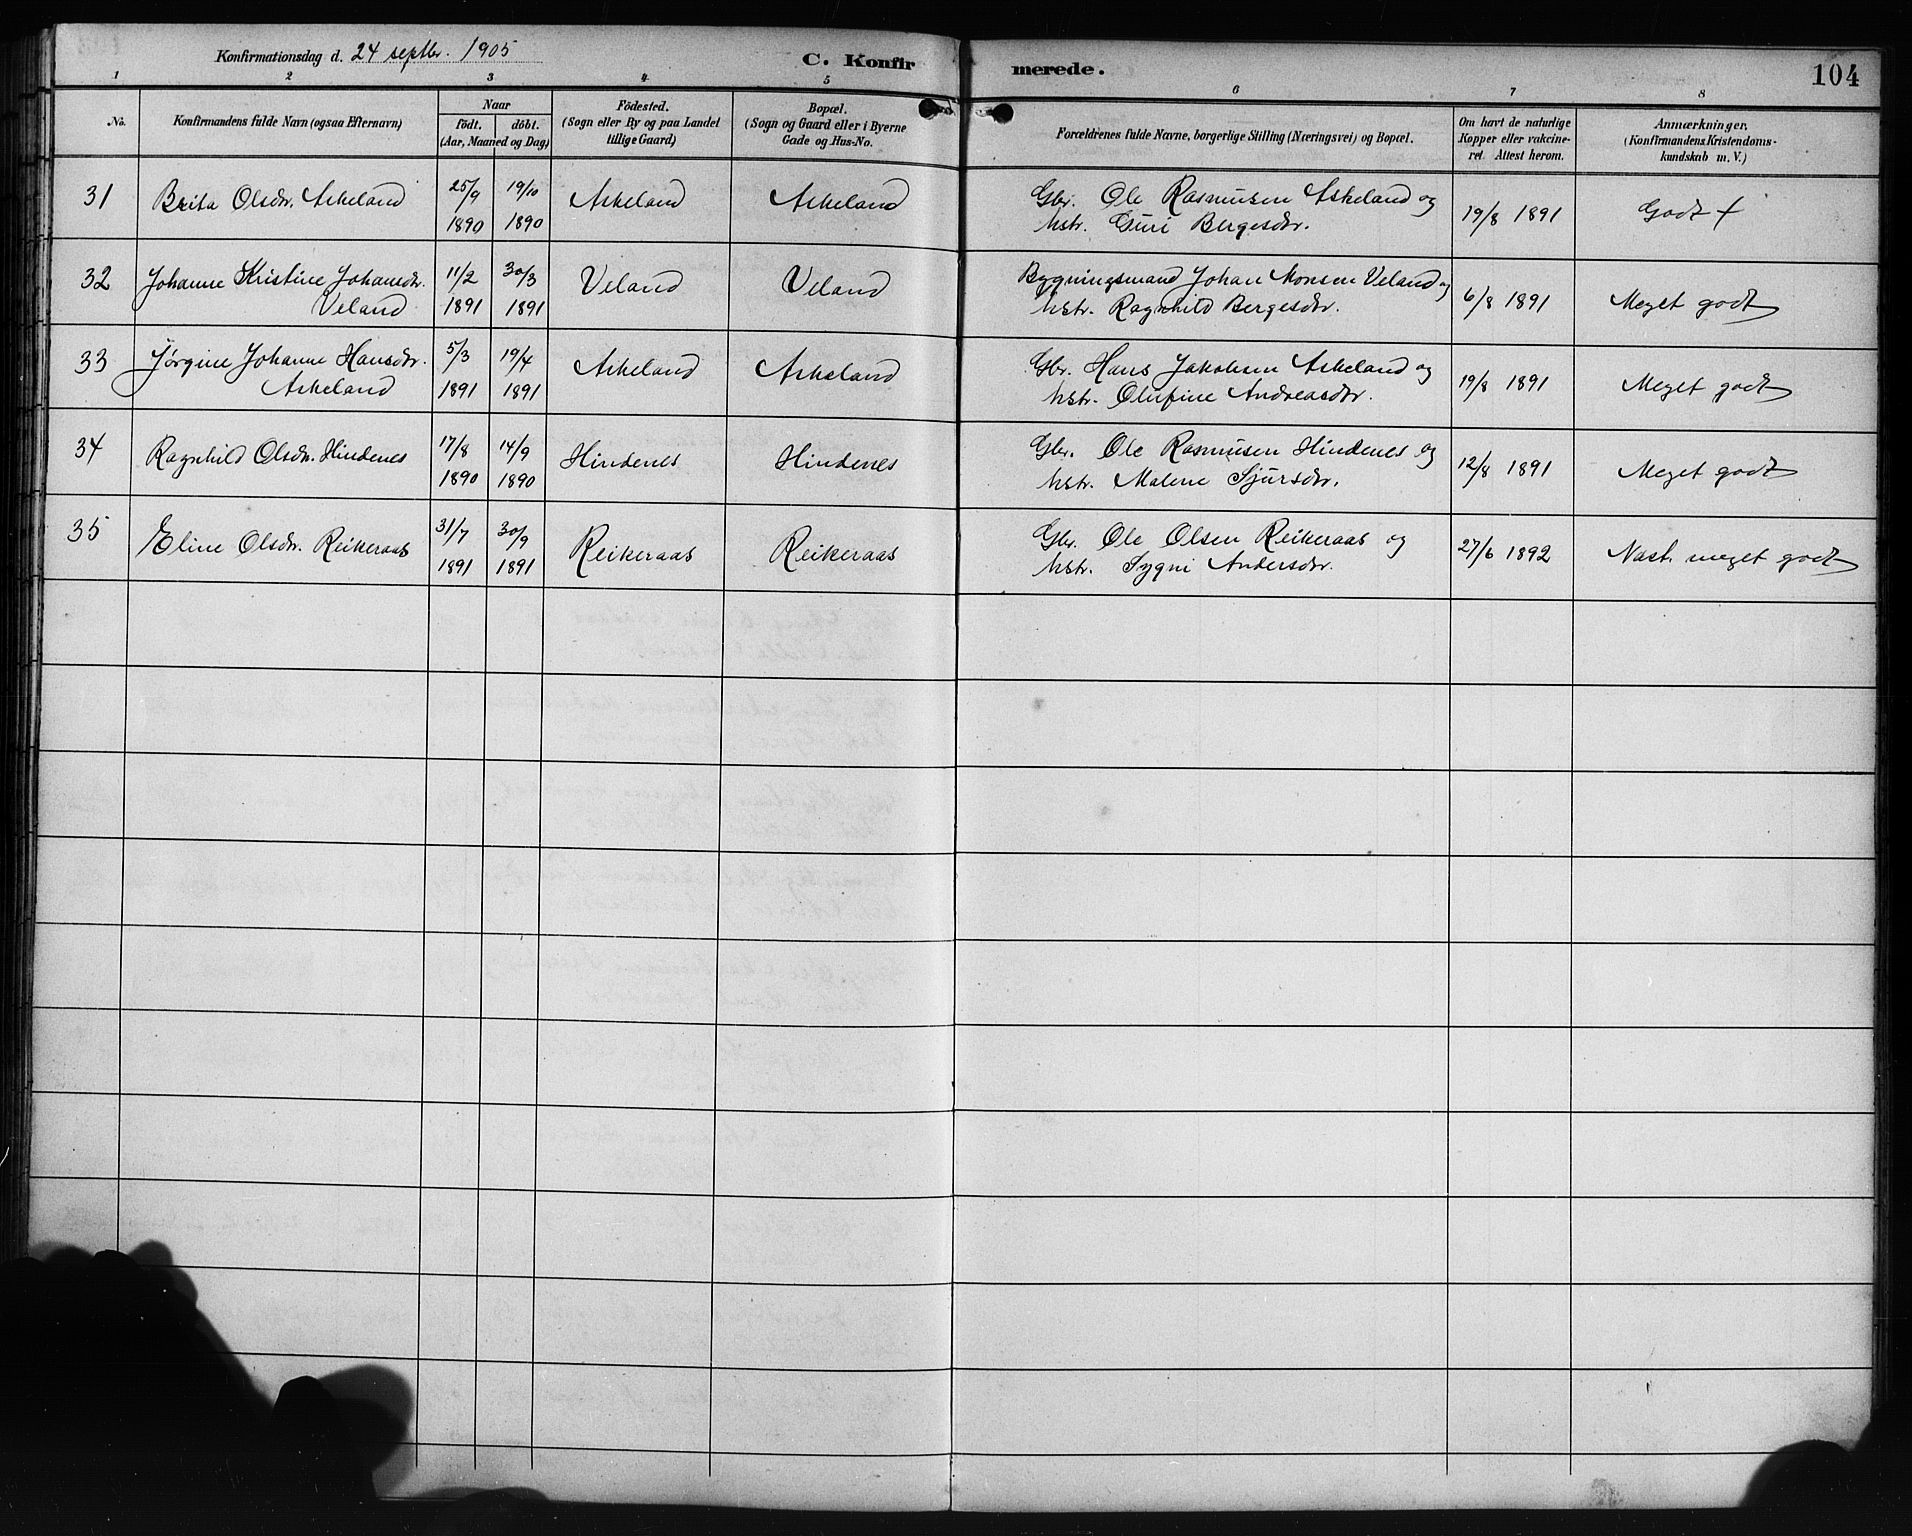 Konfirmationsdag d. 24 septbr. 1905
C. Konfirmerede.
104
1 2 3 4 5 6 7 8
No.
Konfirmandens fulde Navn (ogsaa Efternavn)
Naar
födt. döbt.
(Aar, Maaned og Dag)
Födested.
(Sogn eller By og paa Landet
tillige Gaard)
Bopæl.
(Sogn og Gaard eller i Byerne
Gade og Hus-No.
Forældrenes fulde Navne, borgerlige Stilling (Næringsvei) og Bopæl.
Om havt de naturlige
Kopper eller vakcine-
ret. Attest herom.
Anmærkninger.
(Konfirmandens Kristendoms-
kundskab m. V.)
31 Brita Olsdr. Askeland 25/9 19/10 Askeland Askeland Gbr. Ole Rasmusen Askeland og 19/8 1891 Godt +
1890 1890 hstr. Guri Bergesdtr.
32 Johanne Kristine Johansdr. 11/2 30/3 Veland Veland Bygningsmand Johan Monsen Veland og 6/8 1891 Meget godt
Veland 1891 1891 hstr. Ragnhild Bergesdtr.
33 Jørgine Johanne Hansdr. 5/3 19/4 Askeland Askeland Gbr. Hans Jakobsen Askeland og 19/8 1891 Meget godt
Askeland 1891 1891 hstr. Olufine Andreasdtr.
34 Ragnhild Olsdr. Hindenes 17/8 14/9 Hindenes Hindenes Gbr. Ole Rasmusen Hindenes og 12/8 1891 Meget godt
1890 1890 hstr. Malene Sjursdtr.
35 Eline Olsdr. Reikeraas 31/7 30/9 Reikeraas Reikeraas Gbr. Ole Olsen Reikeraas og 27/6 1892 Næst. meget godt
1891 1891 hstr. Sygni Andersdtr.